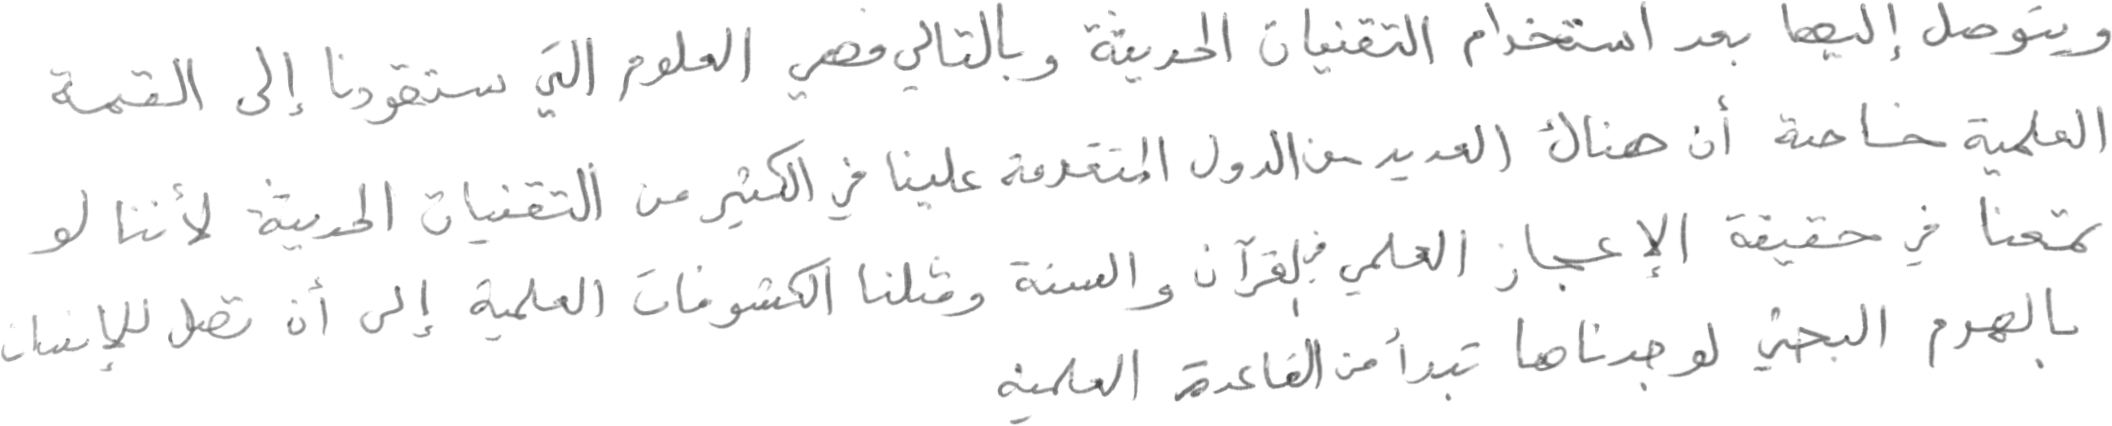 ويتوصل إليها بعد استخدام التقنيات الحديثة وبالتالي فهي العلوم التي ستقودنا إلى القمة
العلمية خاصة أن هناك العديد من الدول المتقدمة علينا في الكثير من التقنيات الحديثة لأننا لو
تمتعنا في حقيقة الإعجاز العلمي في القرآن والسنة ومثلنا الكشوفات العلمية إلى أن تصل للإنسان
بالهرم البحثي لوجدناها تبدأ من القاعدة العلمية